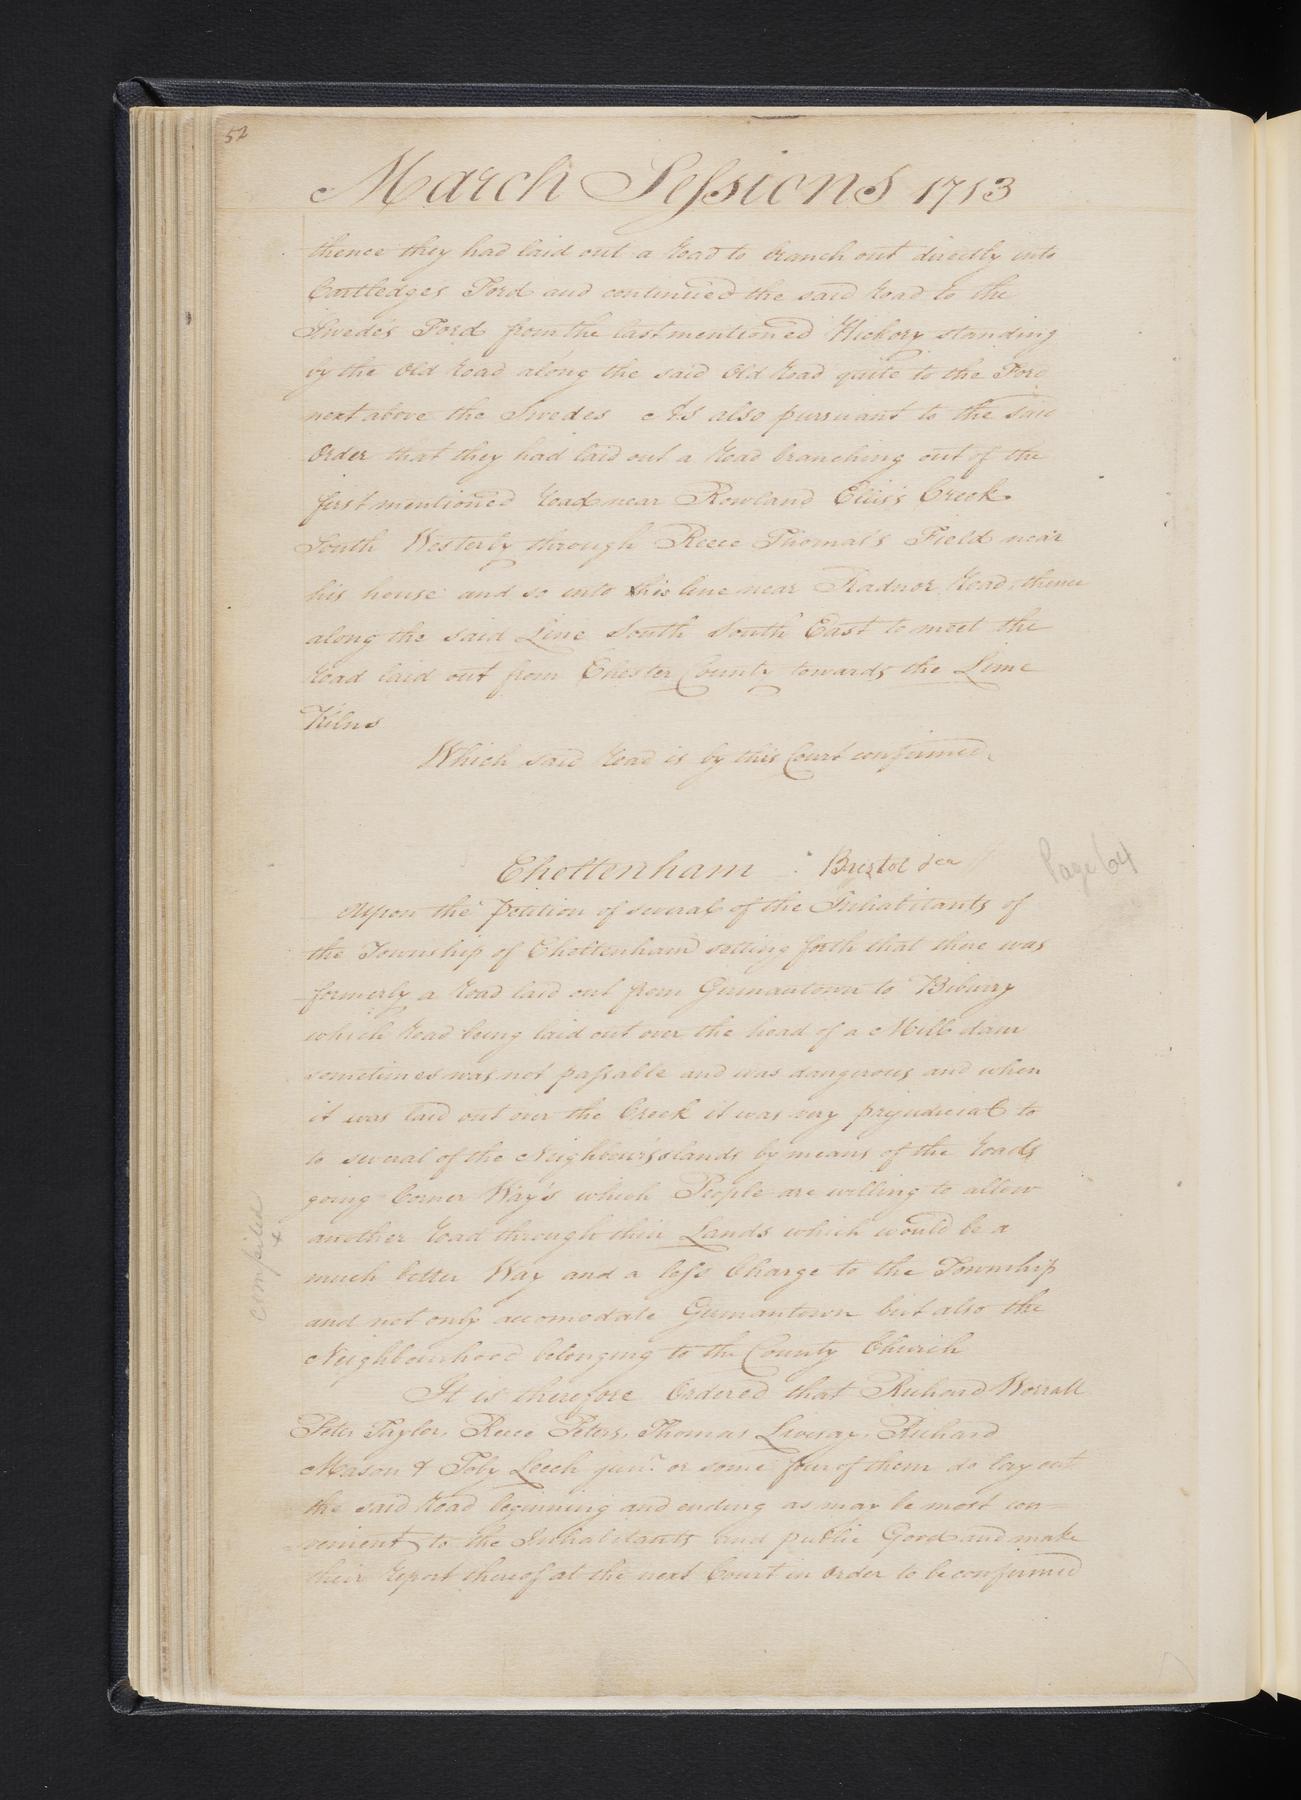 52
March Sessions 1713
thence they had laid out a Road to branch out directly into
Cartledges Ford and continued the said Road to the
Swede's Ford from the last mentioned Hickory standing
by the Old Road along the said Old Road quite to the Ford
next above the Swedes As also pursuant to the said
Order that they had laid out a Road branching out of the
first mentioned Road near Rowland Ellis's Creek
South Westerly through Reece Thomas's Field near
his house and so into this line near Radnor Road, thence
along the said Line South South East to meet the
Road laid out from Chester County towards the Lime
Kilns
Which said Road is by this Court confirmed.
Cheltenham Bristol
Page 64
Upon the Petition of several of the Inhabitants of
the Township of Cheltenham setting forth that there was
formerly a Road laid out from Germantown to Biberry
which Road being laid out over the head of a Mill dam
sometimes was not passable and was dangerous and when
it was laid out over the Creek it was very prejudicial to
to several of the Neighbour's lands by means of the Roads
going Corner Way's which People are willing to allow
another Road through their Lands which would be a
much better Way and a less Charge to the Township
and not only accomodate Germantown but also the
Neighbourhood belonging to the County Church
It is therefore Ordered that Richard Worrall
Peter Taylor, Reece Peters, Thomas Livesay, Richard
Mason & Toby Leech junr. or some four of them do lay out
the said Road beginning and ending as may be most con=
venient to the Inhabitants and public Good and make
their Report thereof at the next Court in Order to be confirmed
compiled